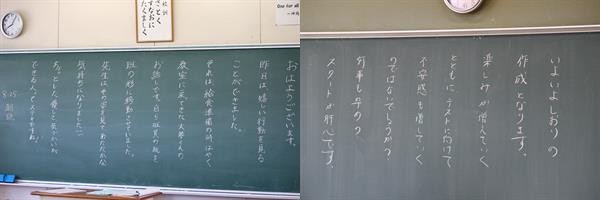 校訓
さとく
すなおに
たくましく
One for all
おはようございます。
昨日は嬉しい行動を見る
ことができました。
それは給食準備の時はやく
教室に来てきた人が
お話しです。自ら班員の机を
班の形に移動させていました。
先生はその姿を見てあたたかな
気持ちになりました!!
できる人ってステキですね!
8:25
朝読
いよいよしおりの
作成となります。
楽しみが増えていく
とともに、テストに向けて
不安感も増していく
のではないでしょうか?
何事もその
スタートが肝心です。